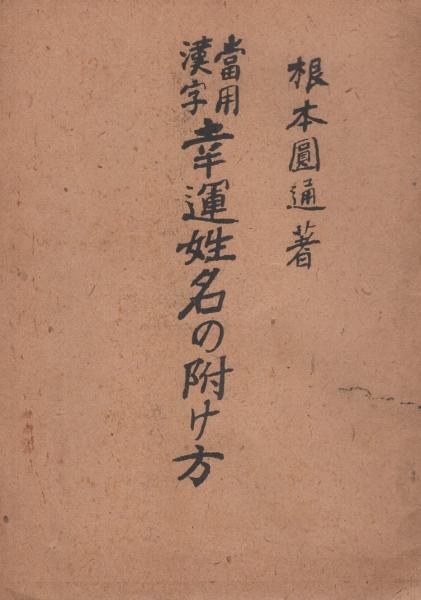 根本圓通著
當用漢字
幸運姓名の附け方